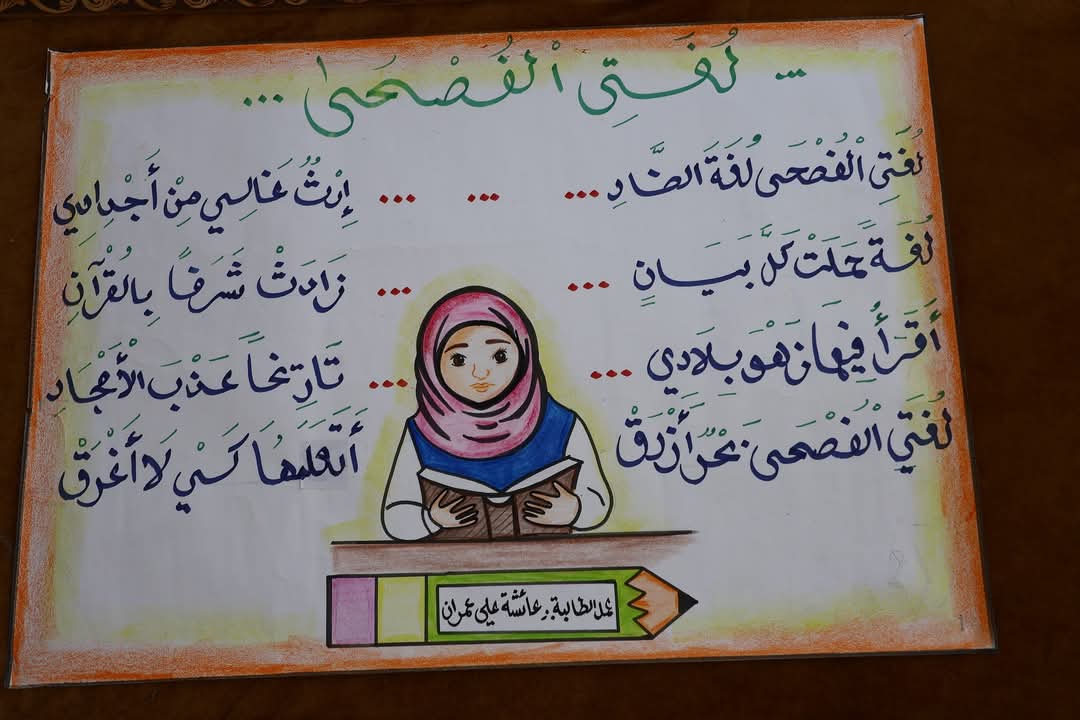 ... لُغَتِي الْفُصْحَى ...
لُغَتِي الْفُصْحَى لُغَةَ الضَّادِ ... ... ... إِرْثُ غَالِي مِنْ أَجْدَادِي
لُغَةً حَمَلَتْ كَلَّ بَيَانٍ ... ... زَادَتْ شَرَفًا بِالْقُرْآنِ
أَقْرَأُ فِيهَا زَهْوَ بِلَادِي ... ... تَارِيخًا عَذْبَ الْأَمْجَادِ
لُغَتِي الْفُصْحَى بَحْرٌ أَزْرَقْ أَتَعَلَّمُهَا كَيْ لَا أَغْرَقْ
عمل الطالبة: عائشة علي عمران